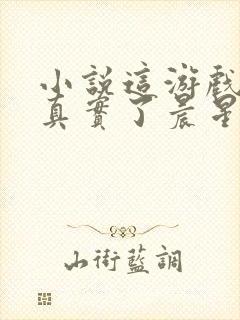 小說這游戲
真實了晨星
山街藍調